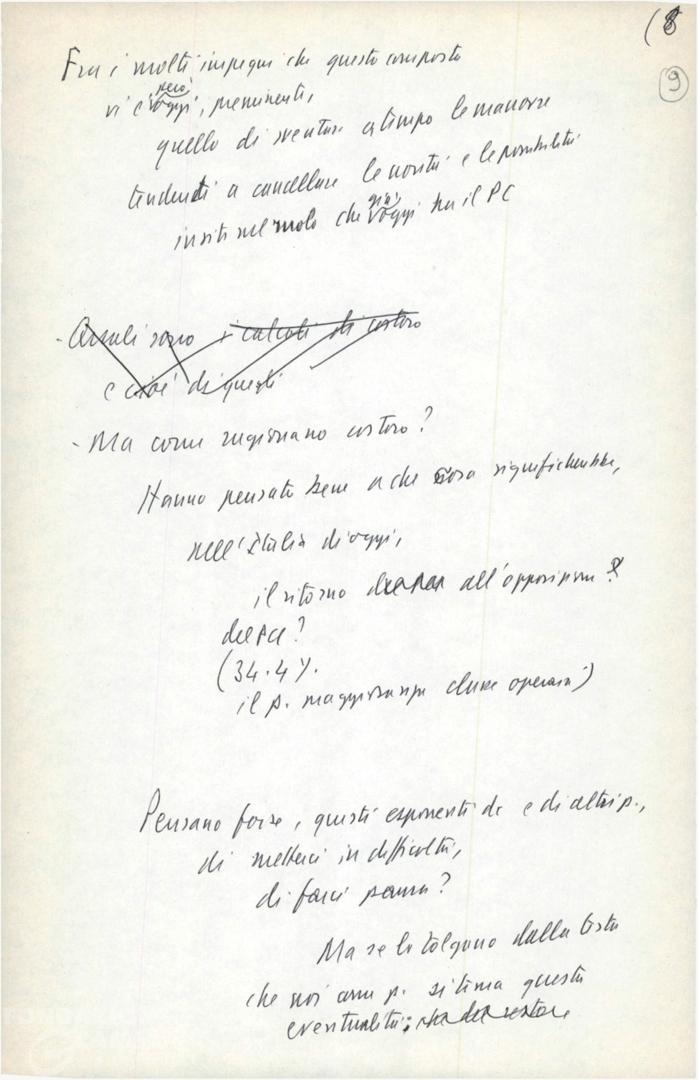 (8
9
Fra i molti impegni che questo comporta
però
vi è oggi, preminente,
quello di sventare a tempo le manovre
tendenti a cancellare le novità e le possibilità
già
insite nel ruolo che oggi ha il PC
- Quali sono i calcoli di costoro
e cioè di quegli
- Ma come ragionano costoro?
Hanno pensato bene a che cosa significherebbe,
nell'Italia di oggi,
il ritorno all'opposizione?
del PCI?
(34.4%.
il p. maggioranza classe operaia)
Pensano forse, questi esponenti dc e di altri p.,
di metterci in difficoltà,
di farci paura?
Ma se lo tolgano dalla testa
che noi come p. si tema questa
eventualità: